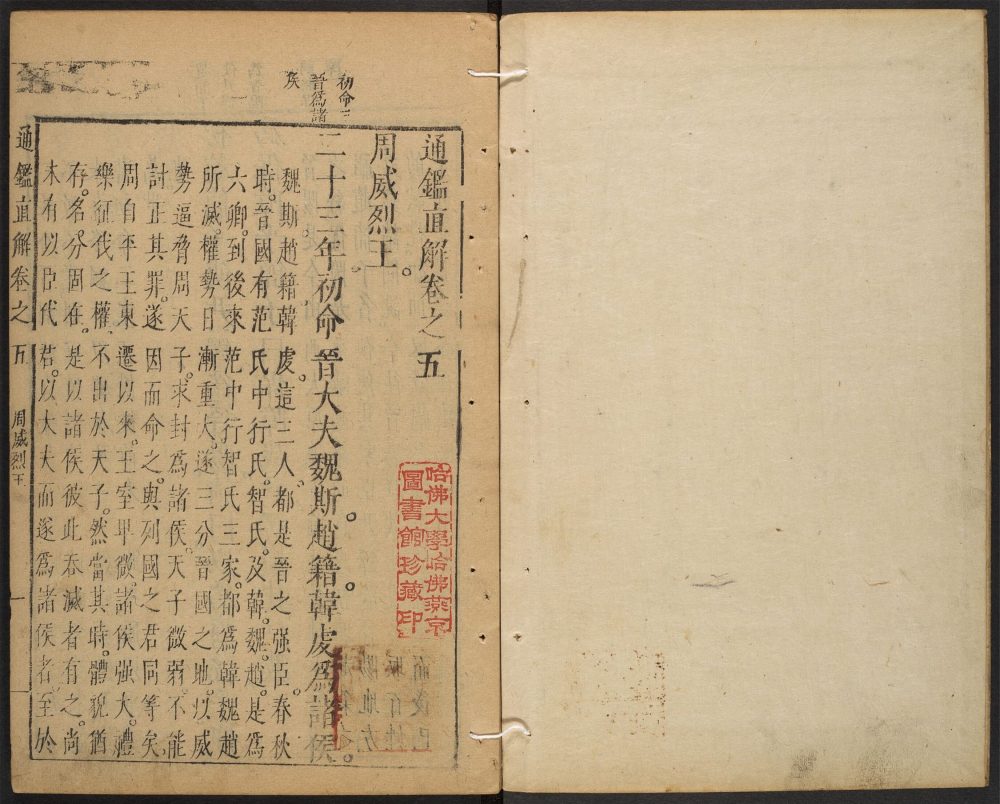 通鑑直解卷之五
周威烈王。
初命三
晉爲諸
侯
二十三年。初命晉大夫魏斯。趙籍。韓虔爲諸侯。
魏斯。趙籍。韓虔。這三人。都是晉之强臣。春秋
時。晉國有范氏。中行氏。智氏。及韓。魏。趙。是爲
六卿。到後來范中行智氏三家。都爲韓魏趙
所滅。權勢日漸重大。遂三分晉國之地。以威
勢逼脅周天子。求封爲諸侯。天子微弱。不能
討正其罪。遂因而命之。與列國之君同等矣。
周自平王東遷以來。王室卑微。諸侯强大。禮
樂征伐之權。不出於天子。然當其時。體貌猶
存。名分固在。是以諸侯彼此吞滅者有之。尚
未有以臣代君。以大夫而遂爲諸侯者。至於
通鑑直解卷之五 周威烈王 一
哈佛大學哈佛燕京
圖書館珍藏印